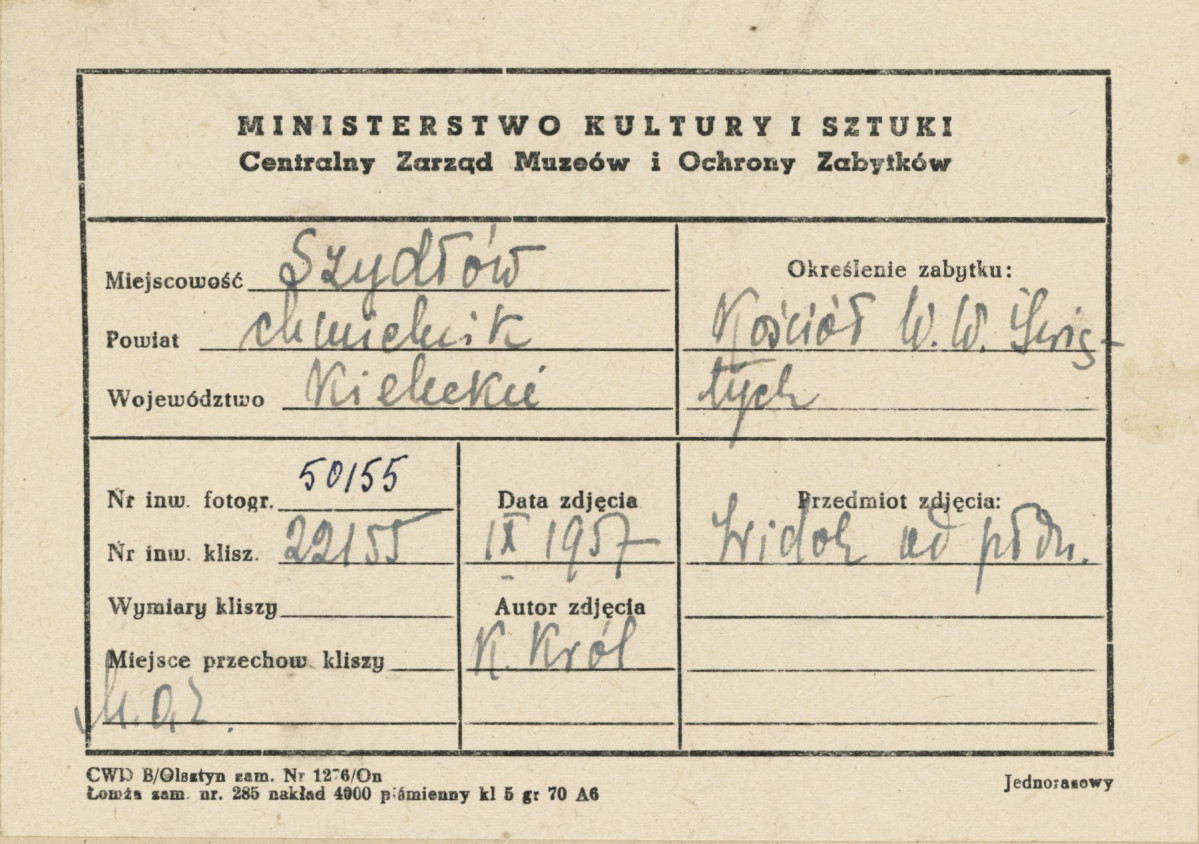 MINISTERSTWO KULTURY I SZTUKI
Centralny Zarząd Muzeów i Ochrony Zabytków
Miejscowość Szydłów
Powiat chmielnik
Województwo Kieleckie
Określenie zabytku:
Kościół W.W. Świę-
tych
Nr inw. fotogr. 50155
Nr inw. klisz. 22155
Wymiary kliszy
Miejsce przechow. kliszy
Data zdjęcia
IX 1957
Autor zdjęcia
K. Król
Przedmiot zdjęcia:
Widok od płdn.
CWD B/Olsztyn zam. Nr 1276/On
Łomża zam. nr. 285 nakład 4000 piśmienny kl 5 gr 70 A6
Jednorazowy